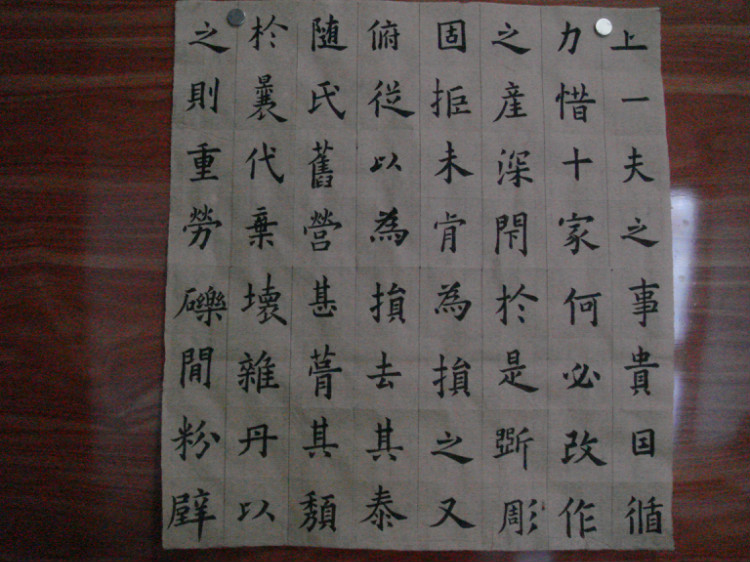 上一夫之事貴因循
力惜十家何必改作
之産深閇於是斲彫
固拒未肯為損之又
俯從以為損去其泰
随氏舊營甚葺其頹
於曩代棄壞雜丹以
之則重勞礫閒粉壁